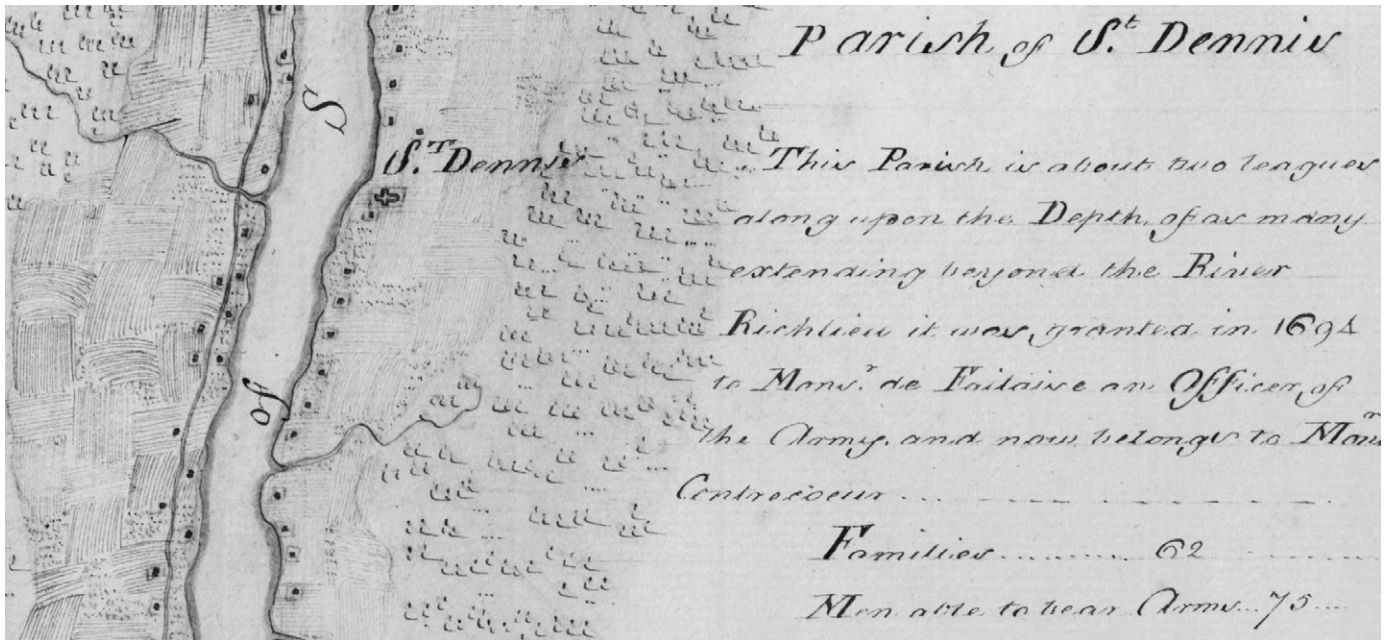 Parish of St. Dennis
S
St. Dennis
This Parish is about two leagues
along upon the Depth, of as many
extending beyond the River
Richlieu it was, granted in 1694
to Monsr. de Failaise an Officer, of
the Army, and now belongs to Monsr
Contrecoeur
of
Families ......... 62
Men able to bear Arms... 75...